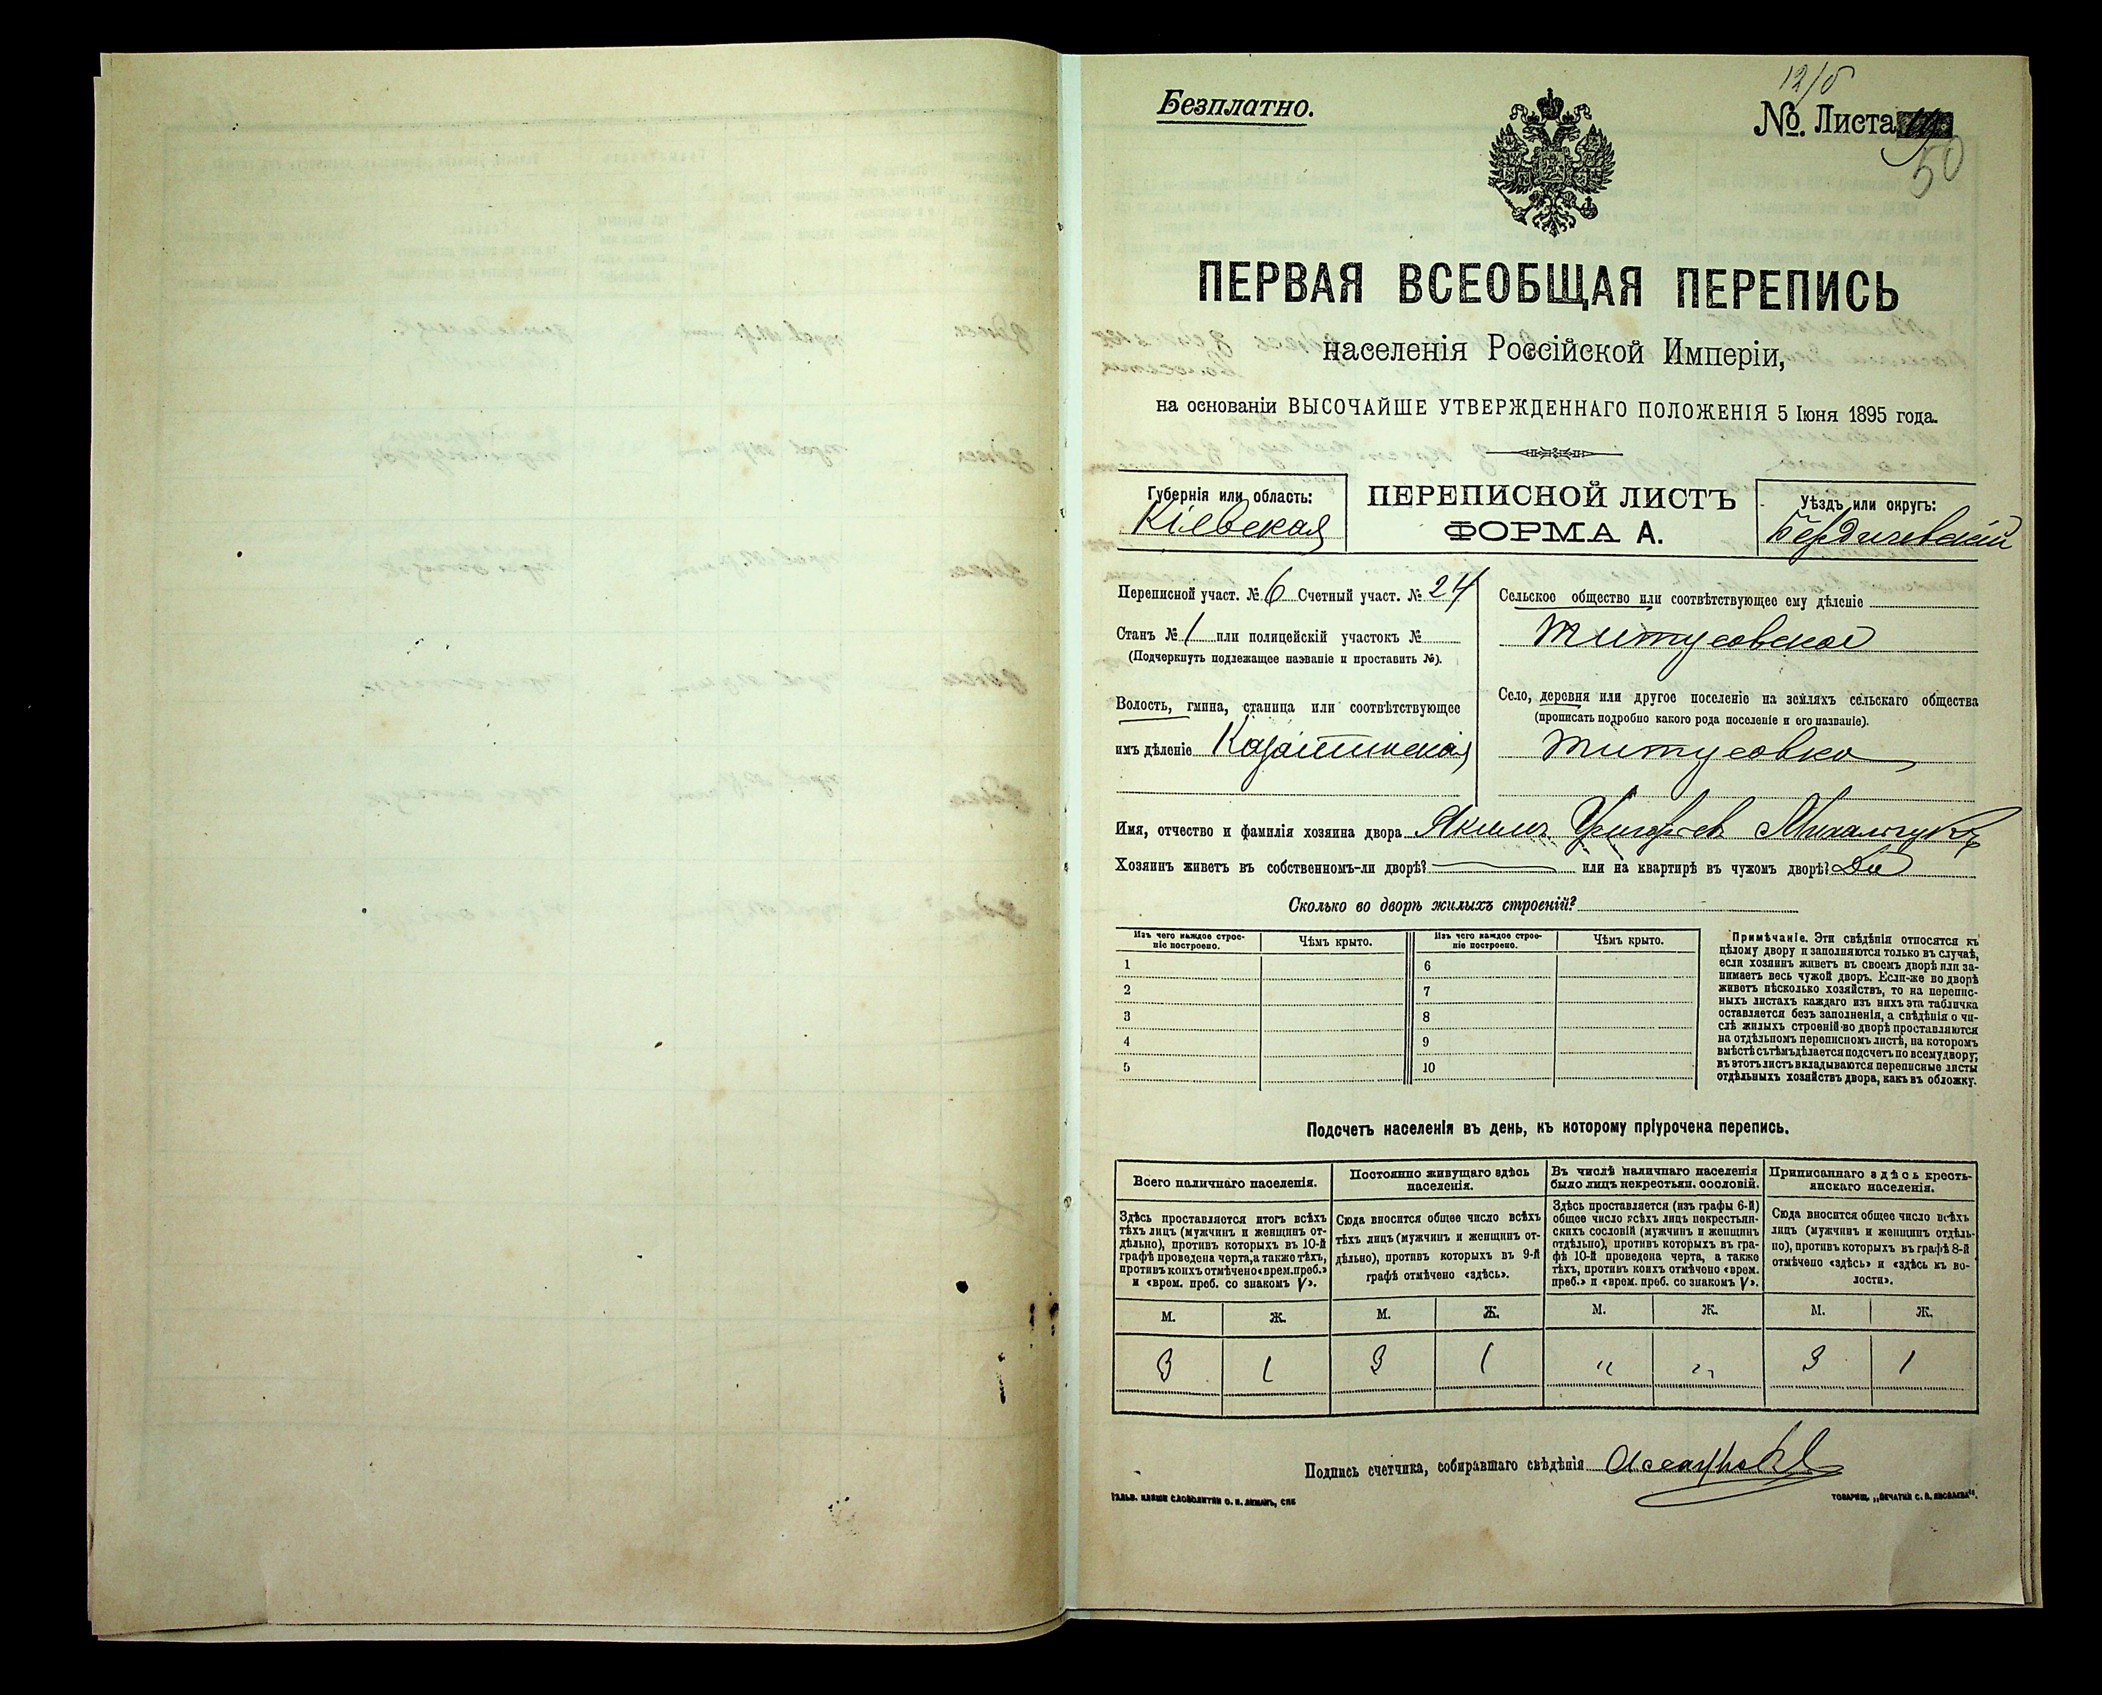 Безплатно.
12/б
№. Листа
50
ПЕРВАЯ ВСЕОБЩАЯ ПЕРЕПИСЬ
населенія Россійской Имперіи,
на основаніи ВЫСОЧАЙШЕ УТВЕРЖДЕННАГО ПОЛОЖЕНІЯ 5 Іюня 1895 года.
Губернія или область:
Кіевская
ПЕРЕПИСНОЙ ЛИСТЪ
ФОРМА А.
Уѣздъ или округъ:
Бердичевскій
Переписной участ. № 6 Счетный участ. № 24
Станъ № 1 или полицейскій участокъ №
(Подчеркнуть подлежащее названіе и проставить №).
Волость, гмина, станица или соотвѣтствующее
имъ дѣленіе Казатинская
Сельское общество или соотвѣтствующее ему дѣленіе
Титусовское
Село, деревня или другое поселеніе на земляхъ сельскаго общества
(прописать подробно какого рода поселеніе и его названіе).
Титусовка
Имя, отчество и фамилія хозяина двора Якимъ Григорьев Михальчукъ
Хозяинъ живетъ въ собственномъ-ли дворѣ? или на квартирѣ въ чужомъ дворѣ? Да
Сколько во дворѣ жилыхъ строеній?
Изъ чего каждое строеніе построено. Чѣмъ крыто. Изъ чего каждое строеніе построено. Чѣмъ крыто.
1 6
2 7
3 8
4 9
5 10
Примѣчаніе. Эти свѣдѣнія относятся къ
цѣлому двору и заполняются только въ случаѣ,
если хозяинъ живетъ въ своемъ дворѣ или за-
нимаетъ весь чужой дворъ. Если-же во дворѣ
живетъ нѣсколько хозяйствъ, то на перепис-
ныхъ листахъ каждаго изъ нихъ эта табличка
оставляется безъ заполненія, а свѣдѣнія о чи-
слѣ жилыхъ строеній во дворѣ проставляются
на отдѣльномъ переписномъ листѣ, на которомъ
вмѣстѣ съ тѣмъ дѣлается подсчетъ по всему двору;
въ этотъ листъ вкладываются переписные листы
отдѣльныхъ хозяйствъ двора, какъ въ обложку.
Подсчетъ населенія въ день, къ которому пріурочена перепись.
Всего наличнаго населенія.
Здѣсь проставляется итогъ всѣхъ
тѣхъ лицъ (мужчинъ и женщинъ от-
дѣльно), противъ которыхъ въ 10-й
графѣ проведена черта, а также тѣхъ,
противъ коихъ отмѣчено «врем. преб.»
и «врем. преб. со знакомъ V».
Постоянно живущаго здѣсь
населенія.
Сюда вносится общее число всѣхъ
тѣхъ лицъ (мужчинъ и женщинъ от-
дѣльно), противъ которыхъ въ 9-й
графѣ отмѣчено «здѣсь».
Въ числѣ наличнаго населенія
было лицъ некрестьян. сословій.
Здѣсь проставляется (изъ графы 6-й)
общее число всѣхъ лицъ некрестьян-
скихъ сословій (мужчинъ и женщинъ
отдѣльно), противъ которыхъ въ гра-
фѣ 10-й проведена черта, а также
тѣхъ, противъ коихъ отмѣчено «врем.
преб.» и «врем. преб. со знакомъ V».
Приписаннаго здѣсь кресть-
янскаго населенія.
Сюда вносится общее число всѣхъ
лицъ (мужчинъ и женщинъ отдѣль-
но), противъ которыхъ въ графѣ 8-й
отмѣчено «здѣсь» и «здѣсь къ во-
лости».
М. Ж. М. Ж. М. Ж. М. Ж.
3 1 3 1 „ „ 3 1
Подпись счетчика, собиравшаго свѣдѣнія